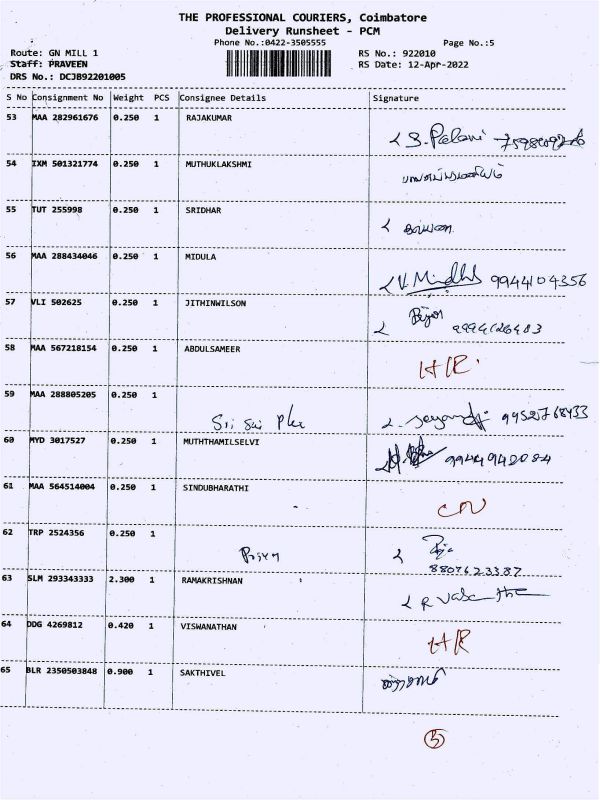 THE PROFESSIONAL COURIERS, Coimbatore
Delivery Runsheet - PCM
Phone No.:0422-3505555 Page No.:5
Route: GN MILL 1 RS No.: 922010
Staff: PRAVEEN RS Date: 12-Apr-2022
DRS No.: DCJB92201005
S No Consignment No Weight PCS Consignee Details Signature
53 MAA 282961676 0.250 1 RAJAKUMAR
S. Palani
54 IXM 501321774 0.250 1 MUTHUKLAKSHMI
55 TUT 255998 0.250 1 SRIDHAR
56 MAA 288434046 0.250 1 MIDULA
9944104356
57 VLI 502625 0.250 1 JITHINWILSON
58 MAA 567218154 0.250 1 ABDULSAMEER
59 MAA 288805205 0.250 1
Sri Sai
60 MYD 3017527 0.250 1 MUTHTHAMILSELVI
61 MAA 564514004 0.250 1 SINDUBHARATHI
CN
62 TRP 2524356 0.250 1
8807623387
63 SLM 293343333 2.300 1 RAMAKRISHNAN
64 DDG 4269812 0.420 1 VISWANATHAN
65 BLR 2350503848 0.900 1 SAKTHIVEL
5